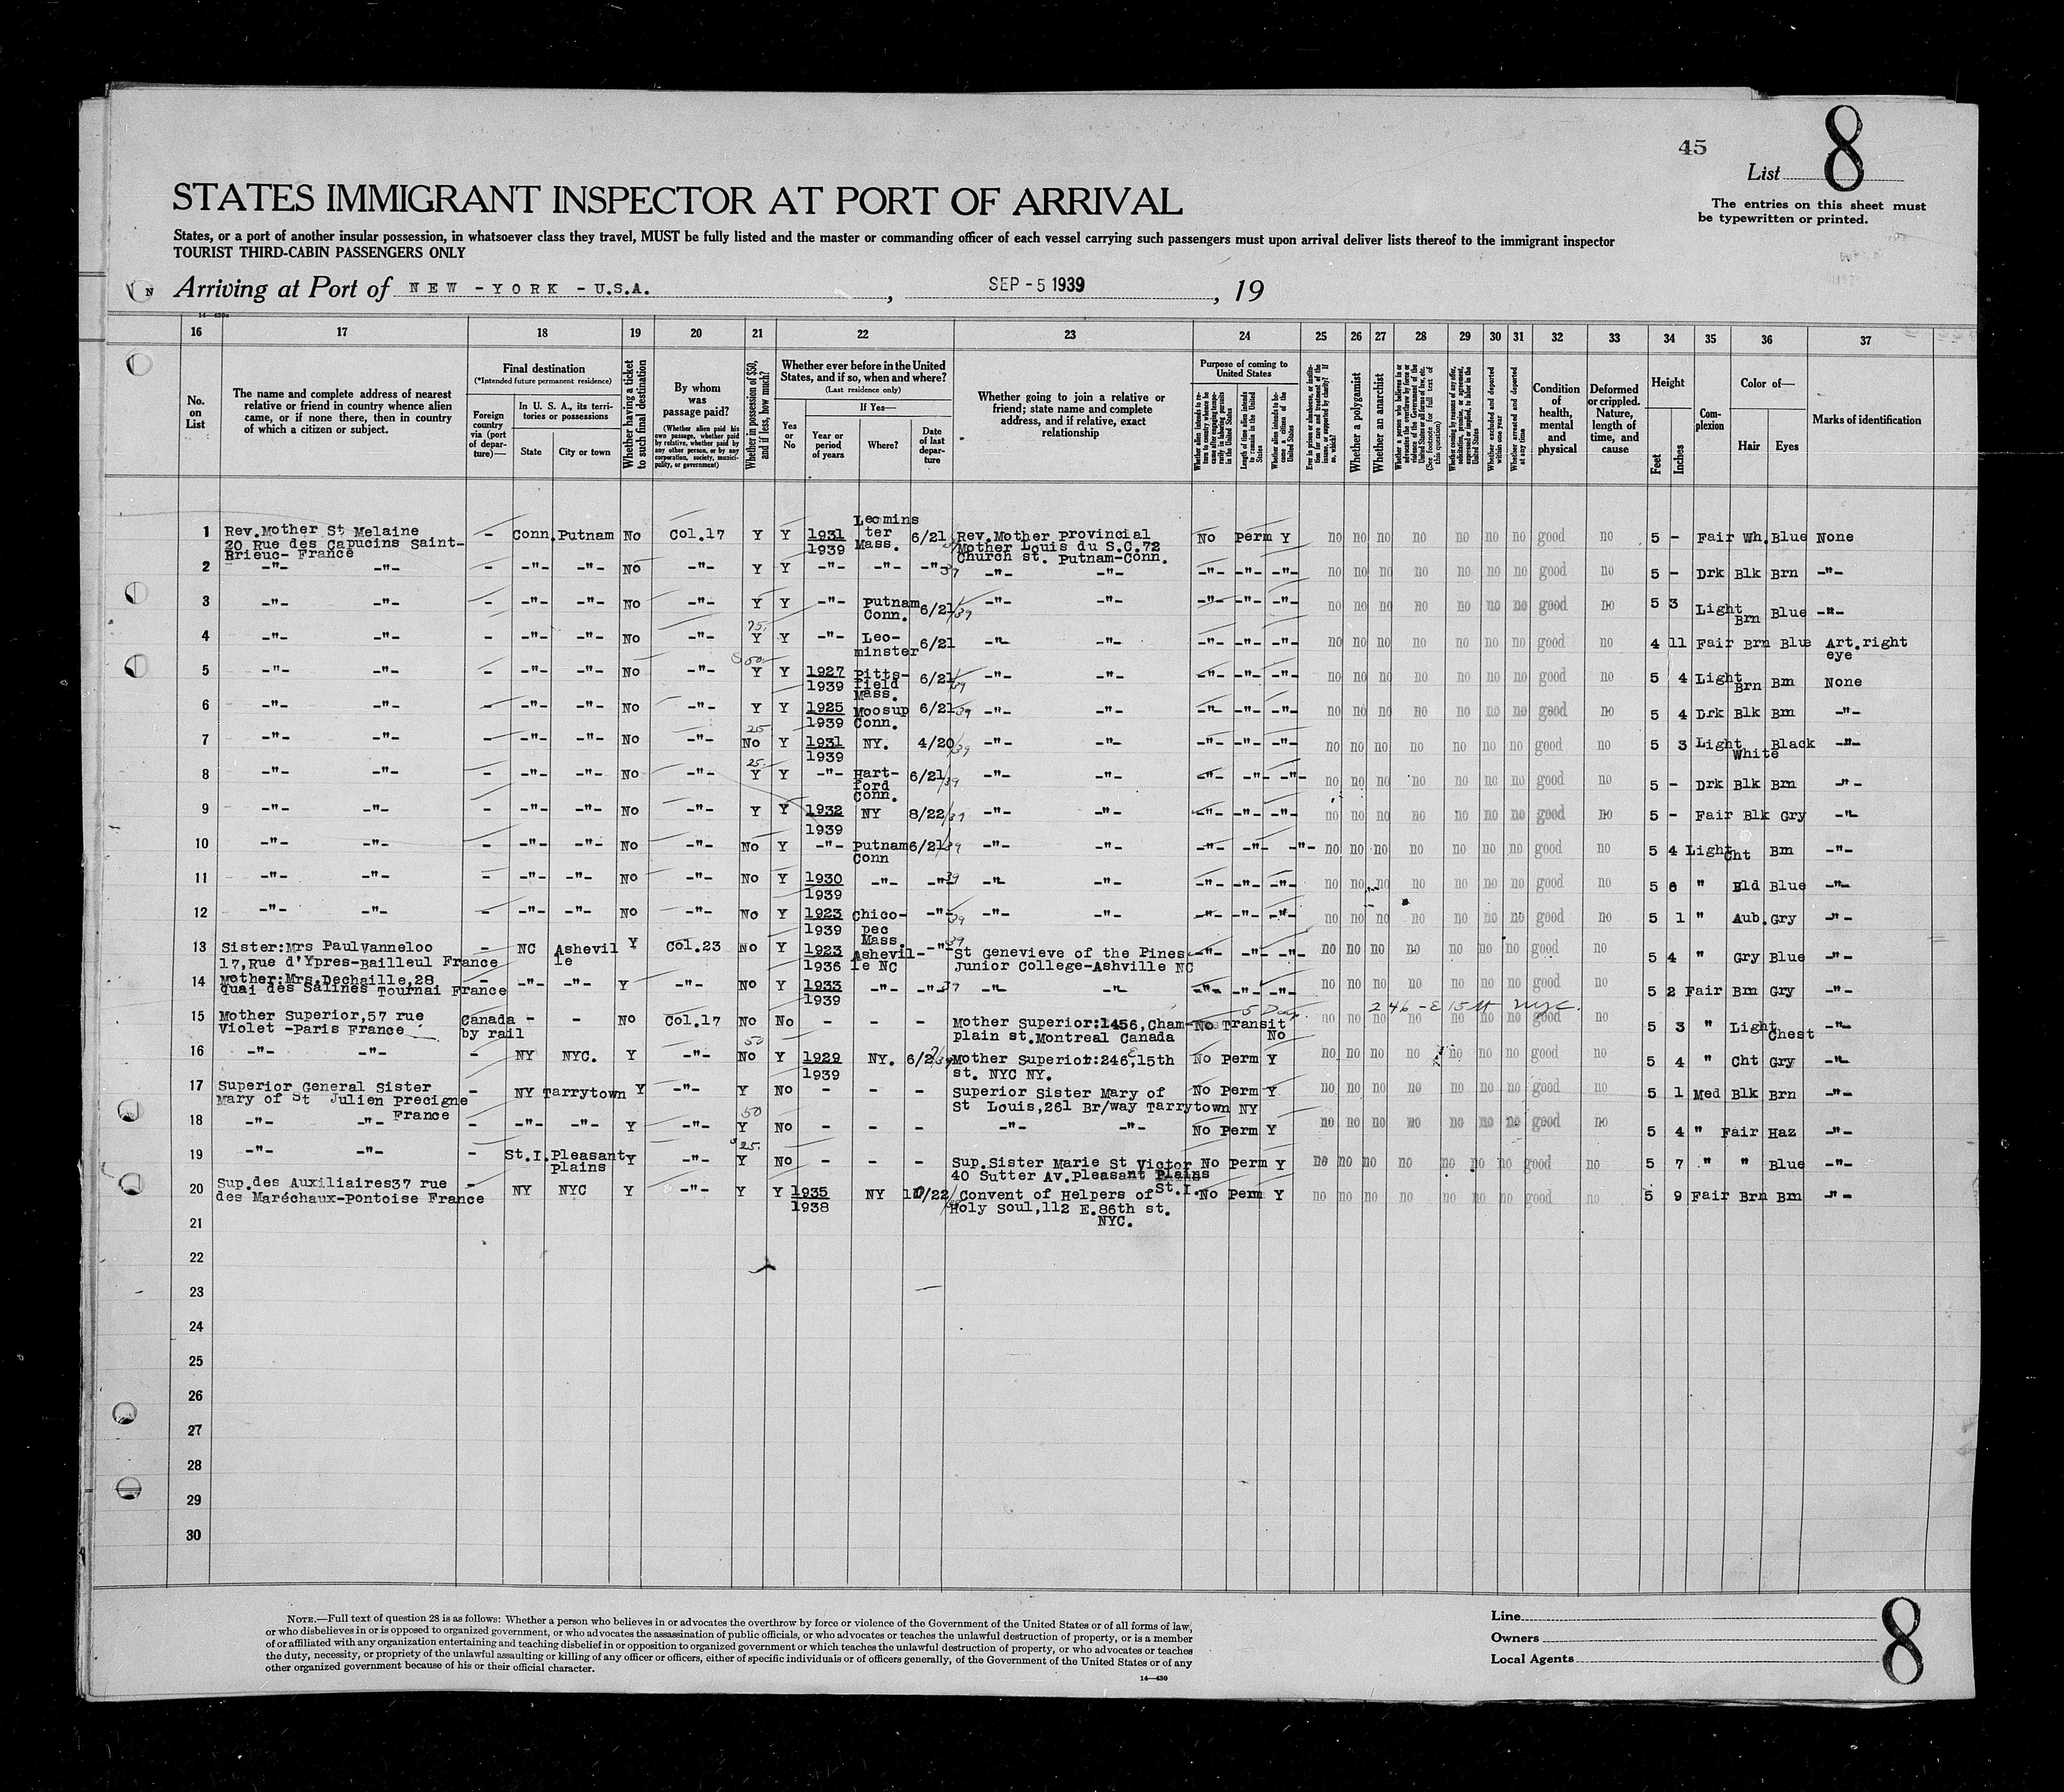 45
List 8
The entries on this sheet must
be typewritten or printed.
STATES IMMIGRANT INSPECTOR AT PORT OF ARRIVAL
States, or a port of another insular possession, in whatsoever class they travel, MUST be fully listed and the master or commanding officer of each vessel carrying such passengers must upon arrival deliver lists thereof to the immigrant inspector
TOURIST THIRD-CABIN PASSENGERS ONLY
Arriving at Port of NEW -YORK -U.S.A. , SEP - 5 1939 , 19
16 17 18 19 20 21 22 23 24 25 26 27 28 29 30 31 32 33 34 35 36 37
No. on List
The name and complete address of nearest
relative or friend in country whence alien
came, or if none there, then in country
of which a citizen or subject.
Final destination
(*Intended future permanent residence)
Foreign country via (port of departure)—
In U. S. A., its territories or possessions
State
City or town
Whether having a ticket to such final destination
By whom was passage paid?
(Whether alien paid his own passage, whether paid by relative, whether paid by any other person, or by any corporation, society, municipality, or government)
Whether in possession of $50, and if less, how much?
Whether ever before in the United States, and if so, when and where?
(Last residence only)
Yes or No
If Yes—
Year or period of years
Where?
Date of last departure
Whether going to join a relative or
friend; state name and complete
address, and if relative, exact
relationship
Purpose of coming to United States
Length of time alien intends to remain in the United States
Whether alien intends to become a citizen of the United States
Whether a polygamist
Whether an anarchist
Whether excluded and deported within one year
Whether arrested and deported at any time
Condition of health, mental and physical
Deformed or crippled. Nature, length of time, and cause
Height
Feet
Inches
Complexion
Color of—
Hair
Eyes
Marks of identification
1 Rev.Mother St Melaine 20 Rue des Capucins Saint-Brieuc- France - Conn. Putnam No Col.17 Y Y 1931 1939 Leominster Mass. 6/21 Rev.Mother Provincial Mother Louis du S.C.72 Church st. Putnam-Conn. No Perm Y no no no no no no no good no 5 - Fair Wh. Blue None
2 -"- -"- - -"- -"- No -"- Y Y -"- -"- -"- -"- -"- -"- -"- -"- no no no no no no no good no 5 - Drk Blk Brn -"-
3 -"- -"- - -"- -"- No -"- Y Y -"- Putnam Conn. 6/21/39 -"- -"- -"- -"- -"- no no no no no no no good no 5 3 Light Brn Blue -"-
4 -"- -"- - -"- -"- No -"- 75. Y Y -"- Leominster 6/21 -"- -"- -"- -"- -"- no no no no no no no good no 4 11 Fair Brn Blue Art.right eye
5 -"- -"- - -"- -"- No -"- Y Y 1927 1939 Pittsfield Mass. 6/21/39 -"- -"- -"- -"- -"- no no no no no no no good no 5 4 Light Brn Bm None
6 -"- -"- - -"- -"- No -"- Y Y 1925 1939 Moosup Conn. 6/21/39 -"- -"- -"- -"- -"- no no no no no no no good no 5 4 Drk Blk Bm -"-
7 -"- -"- - -"- -"- No -"- 25 No Y 1931 1939 NY. 4/20/39 -"- -"- -"- -"- -"- no no no no no no no good no 5 3 Light White Black -"-
8 -"- -"- - -"- -"- No -"- 25. Y Y -"- Hartford Conn. 6/21/39 -"- -"- -"- -"- -"- no no no no no no no good no 5 - Drk Blk Bm -"-
9 -"- -"- - -"- -"- No -"- Y Y 1932 1939 NY 8/22/37 -"- -"- -"- -"- -"- no no no no no no no good no 5 - Fair Blk Gry -"-
10 -"- -"- - -"- -"- No -"- No Y -"- Putnam Conn 6/21/39 -"- -"- -"- -"- -"- no no no no no no no good no 5 4 Light Cht Bm -"-
11 -"- -"- - -"- -"- No -"- No Y 1930 1939 -"- -"- 39 -"- -"- -"- -"- -"- no no no no no no no good no 5 6 " Bld Blue -"-
12 -"- -"- - -"- -"- No -"- No Y 1923 1939 Chicopec Mass. -"- 39 -"- -"- -"- -"- -"- no no no no no no no good no 5 1 " Aub. Gry -"-
13 Sister:Mrs PaulVanneloo 17,Rue d'Ypres-Bailleul France - NC Asheville Y Col.23 No Y 1923 1936 Asheville NC -"- St Genevieve of the Pines Junior College-Ashville NC -"- -"- -"- no no no no no no no good no 5 4 " Gry Blue -"-
14 Mother:Mrs.Dechaille,28 quai des Salines Tournai France - -"- -"- Y -"- No Y 1933 1939 -"- -"- 37 -"- -"- -"- -"- -"- no no no no no no no good no 5 2 Fair Bm Gry -"-
246 - E 15 St NYC.
15 Mother Superior,57 rue Violet -Paris France Canada by rail - - No Col.17 No No - - - Mother Superior:1456,Champlain st.Montreal Canada No Transit No no no no no no no no good no 5 3 " Light Chest -"-
16 -"- -"- - NY NYC. Y -"- 50 No Y 1929 1939 NY. Mother Superior:246 E 15th st. NYC NY. No Perm Y no no no no no no no good no 5 4 " Cht Gry -"-
17 Superior General Sister Mary of St Julien Precigne France - NY Tarrytown Y -"- Y No - - - Superior Sister Mary of St Louis,261 Br/way Tarrytown NY No Perm Y no no no no no no no good no 5 1 Med Blk Brn -"-
18 -"- -"- - -"- -"- Y -"- 50 Y No - - - -"- -"- No Perm Y no no no no no no no good no 5 4 " Fair Haz -"-
19 -"- -"- - St.I. Pleasant plains Y -"- $25. Y No - - - Sup.Sister Marie St Victor 40 Sutter Av.Pleasant Plains St.I. No Perm Y no no no no no no no good no 5 7 " " Blue -"-
20 Sup.des Auxiliaires37 rue des Maréchaux-Pontoise France - NY NYC Y -"- Y Y 1935 1938 NY Convent of Helpers of Holy Soul,112 E.86th st. NYC. No Perm Y no no no no no no no good no 5 9 Fair Brn Bm -"-
21
22
23
24
25
26
27
28
29
30
NOTE.—Full text of question 28 is as follows: Whether a person who believes in or advocates the overthrow by force or violence of the Government of the United States or of all forms of law,
or who disbelieves in or is opposed to organized government, or who advocates the assassination of public officials, or who advocates or teaches the unlawful destruction of property, or is a member
of or affiliated with any organization entertaining and teaching disbelief in or opposition to organized government or which teaches the unlawful destruction of property, or who advocates or teaches
the duty, necessity, or propriety of the unlawful assaulting or killing of any officer or officers, either of specific individuals or of officers generally, of the Government of the United States or of any
other organized government because of his or their official character.
14—430
Line
Owners
Local Agents
8